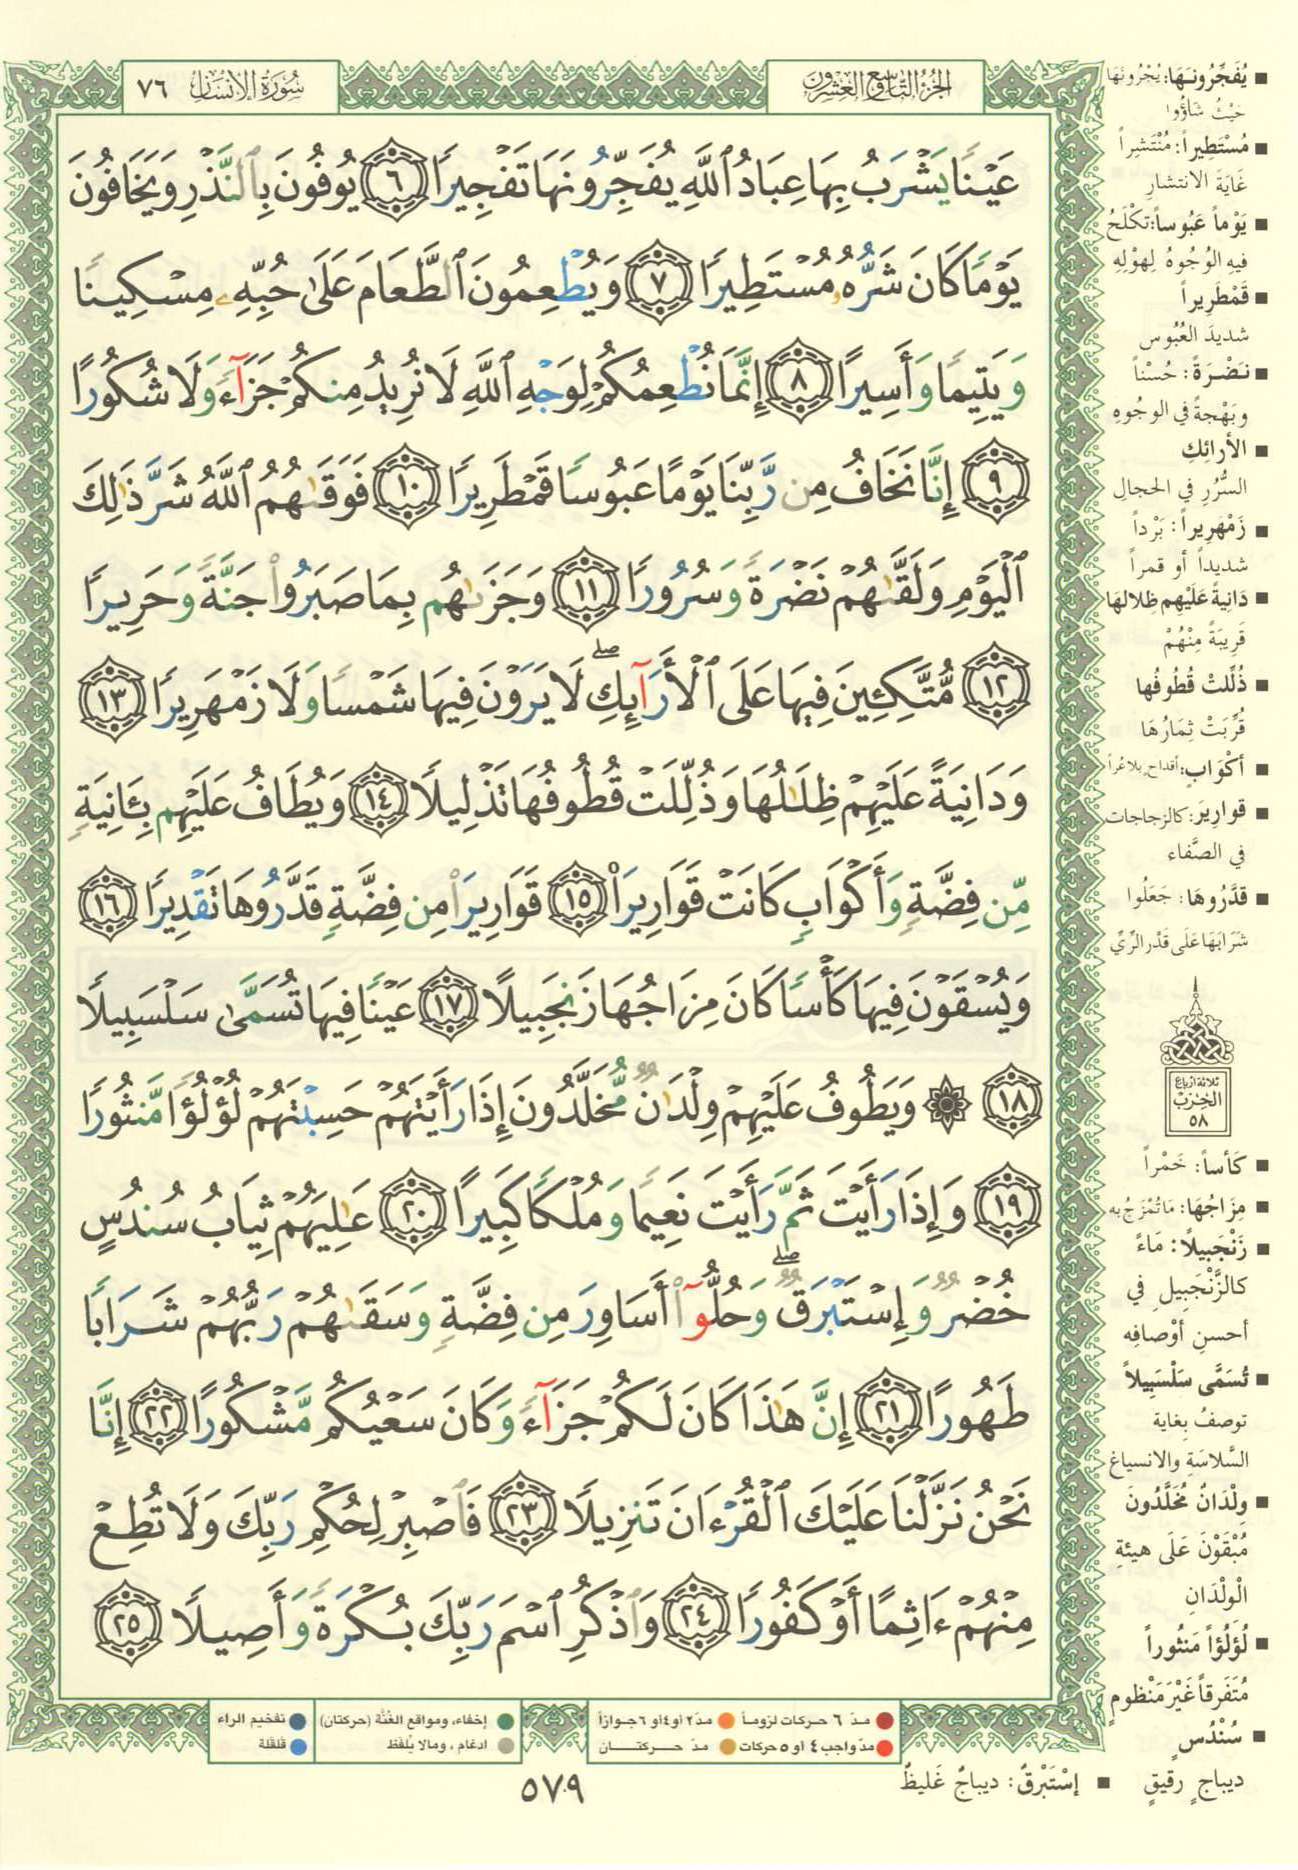 سُورَةُ الإِنسَانِ ٧٦
الجُزْءُ التَّاسِعُ وَالعِشْرُونَ
عَيْنًا يَشْرَبُ بِهَا عِبَادُ ٱللَّهِ يُفَجِّرُونَهَا تَفْجِيرًا ٦ يُوفُونَ بِٱلنَّذْرِ وَيَخَافُونَ
يَوْمًا كَانَ شَرُّهُۥ مُسْتَطِيرًا ٧ وَيُطْعِمُونَ ٱلطَّعَامَ عَلَىٰ حُبِّهِۦ مِسْكِينًا
وَيَتِيمًا وَأَسِيرًا ٨ إِنَّمَا نُطْعِمُكُمْ لِوَجْهِ ٱللَّهِ لَا نُرِيدُ مِنكُمْ جَزَآءً وَلَا شُكُورًا
٩ إِنَّا نَخَافُ مِن رَّبِّنَا يَوْمًا عَبُوسًا قَمْطَرِيرًا ١٠ فَوَقَىٰهُمُ ٱللَّهُ شَرَّ ذَٰلِكَ
ٱلْيَوْمِ وَلَقَّىٰهُمْ نَضْرَةً وَسُرُورًا ١١ وَجَزَىٰهُم بِمَا صَبَرُوا۟ جَنَّةً وَحَرِيرًا
١٢ مُّتَّكِـِٔينَ فِيهَا عَلَى ٱلْأَرَآئِكِ ۖ لَا يَرَوْنَ فِيهَا شَمْسًا وَلَا زَمْهَرِيرًا ١٣
وَدَانِيَةً عَلَيْهِمْ ظِلَـٰلُهَا وَذُلِّلَتْ قُطُوفُهَا تَذْلِيلًا ١٤ وَيُطَافُ عَلَيْهِم بِـَٔانِيَةٍ
مِّن فِضَّةٍ وَأَكْوَابٍ كَانَتْ قَوَارِيرَا۠ ١٥ قَوَارِيرَا۟ مِن فِضَّةٍ قَدَّرُوهَا تَقْدِيرًا ١٦
وَيُسْقَوْنَ فِيهَا كَأْسًا كَانَ مِزَاجُهَا زَنجَبِيلًا ١٧ عَيْنًا فِيهَا تُسَمَّىٰ سَلْسَبِيلًا
١٨ ۞ وَيَطُوفُ عَلَيْهِمْ وِلْدَٰنٌ مُّخَلَّدُونَ إِذَا رَأَيْتَهُمْ حَسِبْتَهُمْ لُؤْلُؤًا مَّنثُورًا
١٩ وَإِذَا رَأَيْتَ ثَمَّ رَأَيْتَ نَعِيمًا وَمُلْكًا كَبِيرًا ٢٠ عَـٰلِيَهُمْ ثِيَابُ سُندُسٍ
خُضْرٌ وَإِسْتَبْرَقٌ ۖ وَحُلُّوٓا۟ أَسَاوِرَ مِن فِضَّةٍ وَسَقَىٰهُمْ رَبُّهُمْ شَرَابًا
طَهُورًا ٢١ إِنَّ هَـٰذَا كَانَ لَكُمْ جَزَآءً وَكَانَ سَعْيُكُم مَّشْكُورًا ٢٢ إِنَّا
نَحْنُ نَزَّلْنَا عَلَيْكَ ٱلْقُرْءَانَ تَنزِيلًا ٢٣ فَٱصْبِرْ لِحُكْمِ رَبِّكَ وَلَا تُطِعْ
مِنْهُمْ ءَاثِمًا أَوْ كَفُورًا ٢٤ وَٱذْكُرِ ٱسْمَ رَبِّكَ بُكْرَةً وَأَصِيلًا ٢٥
■ يُفَجِّرُونَهَا: يُجْرُونَهَا
حَيْثُ شَاؤُوا
■ مُسْتَطِيراً: مُنْتَشِراً
غَايَةَ الانتشارِ
■ يَوْماً عَبُوساً: تَكْلَحُ
فيهِ الوُجُوهُ لِهوْلِهِ
■ قَمْطَرِيراً
شديدَ العُبُوس
■ نَضْرَةً: حُسْناً
وبَهْجةً في الوجُوهِ
■ الأرائِكِ
السُّرُرِ في الحجال
■ زَمْهَرِيراً: بَرْداً
شديداً أو قمراً
■ دَانِيةً عَلَيْهِم ظِلالهَا
قَرِيبَةً مِنْهُمْ
■ ذُلِّلَتْ قُطُوفُها
قُرِّبَتْ ثِمَارُهَا
■ أكْوَابٍ: أقداح بلا عُراً
■ قوارِيرَ: كالزجاجات
في الصَّفاء
■ قَدَّرُوهَا: جَعَلُوا
شَرَابَهَا عَلَى قَدْرِ الرِّيِّ
ثلاثة أرباع
الحِزب
٥٨
■ كَأساً: خَمْراً
■ مِزَاجُهَا: مَا تُمْزَجُ به
■ زَنْجَبِيلاً: مَاءً
كالزَّنْجَبِيلِ في
أحسنِ أوْصافِه
■ تُسَمَّى سَلْسَبِيلاً
توصفُ بِغاية
السَّلاسَةِ والانسياغِ
■ وِلْدَانٌ مُخَلَّدُونَ
مُبْقَوْنَ عَلَى هيئةِ
الْوِلْدَانِ
■ لُؤلُؤاً مَنثُوراً
مُتَفَرقاً غَيْرَ مَنْظومٍ
■ سُنْدُسٍ
ديباجٍ رقيقٍ
■ إسْتَبْرقٌ: ديباجٌ غَليظٌ
مدّ ٦ حركات لزوماً
مدّ ٢ أو ٤ أو ٦ جوازاً
مدّ واجب ٤ أو ٥ حركات
مدّ حركتان
إخفاء، ومواقع الغُنَّة (حركتان)
تفخيم الراء
ادغام، وما لا يُلفَظ
قلقلة
٥٧٩